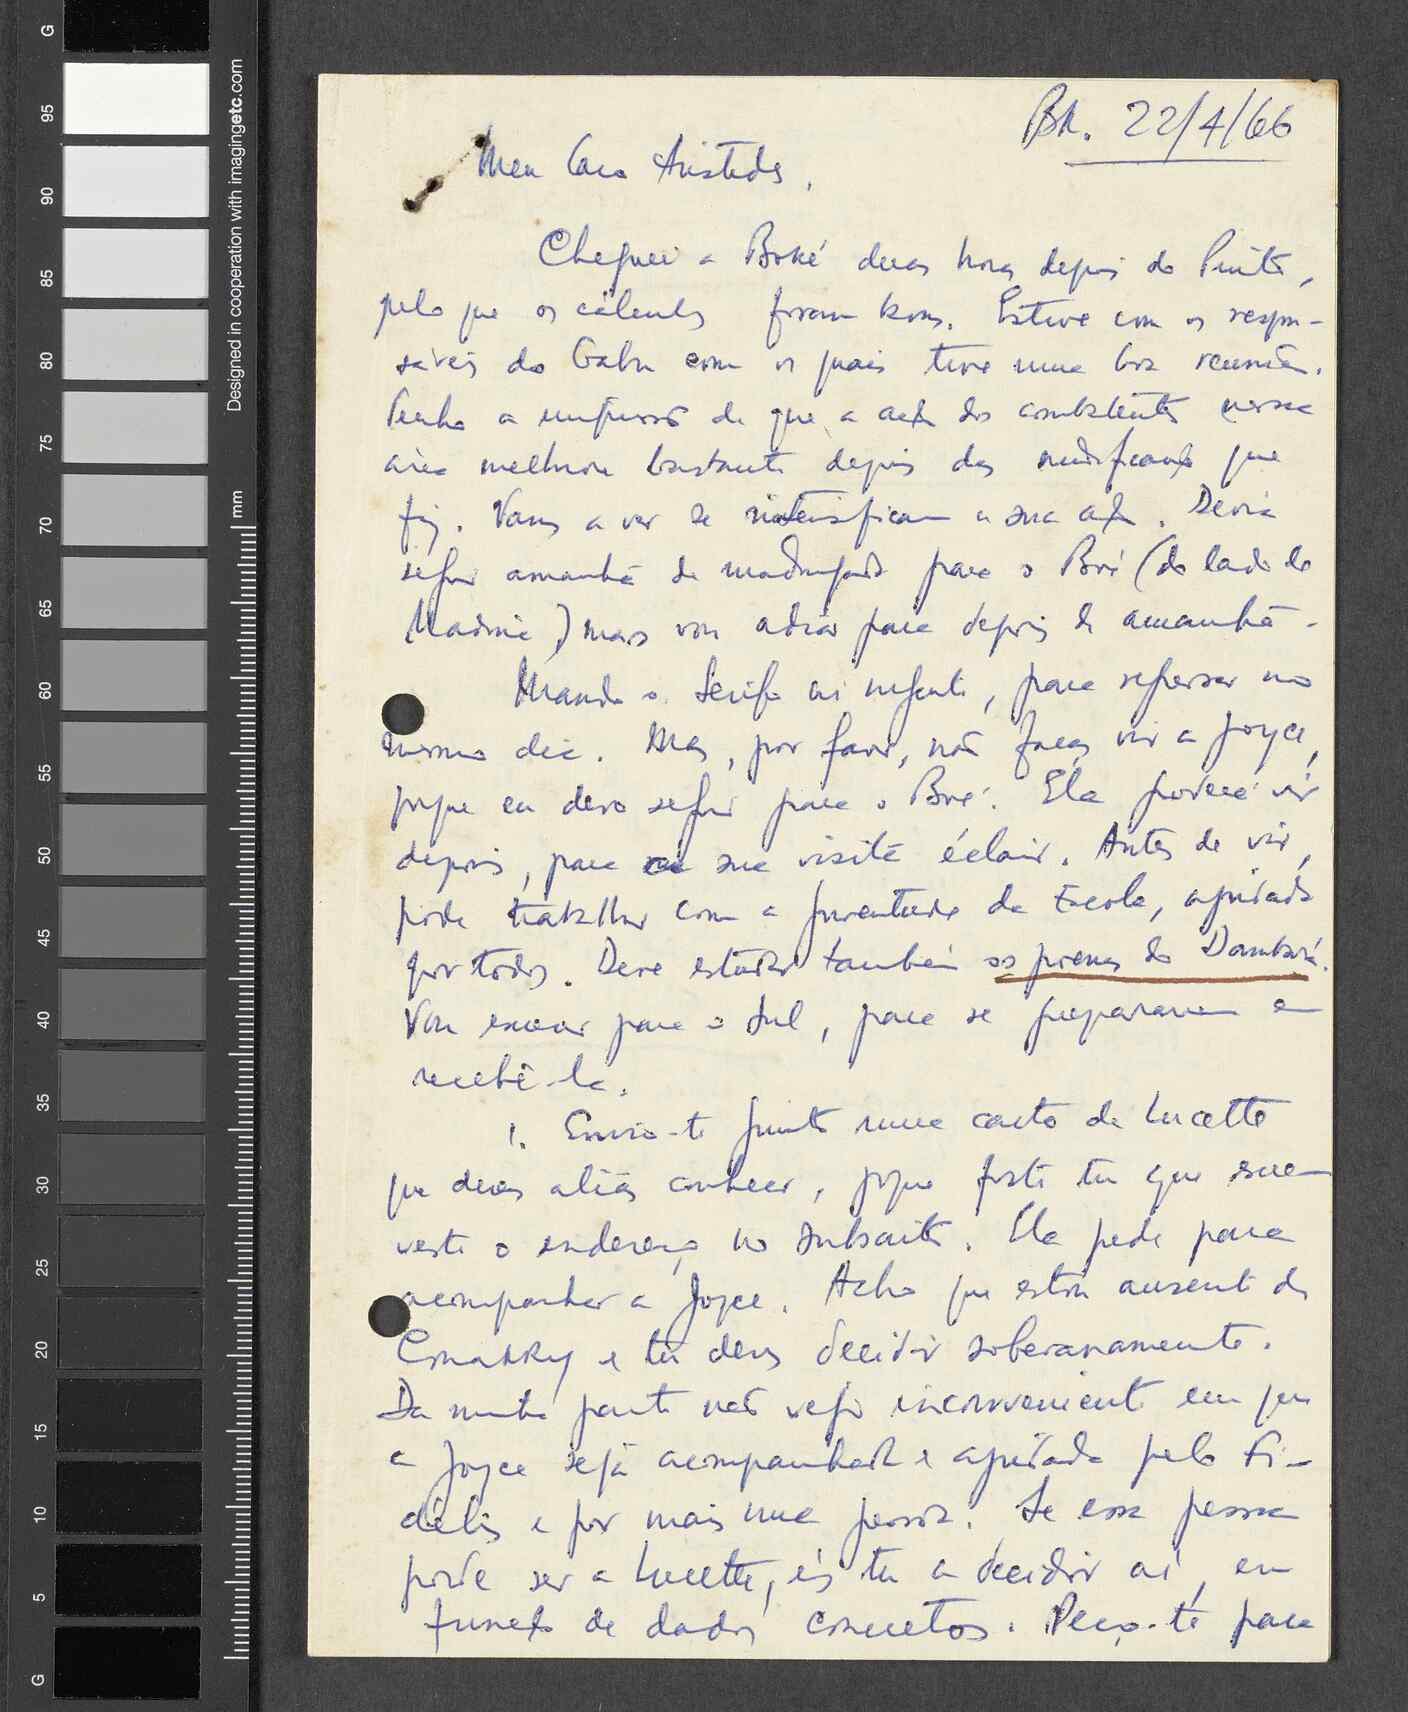 BK. 22/4/66
Meu Caro Aristides,
Cheguei a Boké duas horas depois do Pinto,
pelo que os cálculos foram bons. Estive com os respon-
sáveis do Gabu com os quais tive uma boa reunião.
Tenho a impressão de que a acção dos combatentes nessa
área melhora bastante depois das modificações que
fiz. Vamos a ver se intensificam a sua acção. Devia
seguir amanhã de madrugada para o Boé (do lado de
Madina) mas vou adiar para depois de amanhã.
Mando o Serifo urgente, para regressar no
mesmo dia. Mas, por favor, não faças vir a Joyce,
porque eu devo seguir para o Boé. Ela poderá vir
depois, para a sua visita éclair. Antes de vir,
pode trabalhar com a juventude da Escola, ajudada
por todos. Deve estudar também os poemas do Dambará.
Vou escrever para o Sul, para se prepararem a
recebê-la.
1. Envio-te junto uma carta da Lucette
que deves aliás conhecer, porque foste tu que escre-
veste o endereço no subscrito. Ela pede para
acompanhar a Joyce. Acho que estou ausente de
Conakry e tu deves decidir soberanamente.
Da minha parte não vejo inconveniente em que
a Joyce seja acompanhada e ajudada pelo Fi-
délis e por mais uma pessoa. Se essa pessoa
pode ser a Lucette, és tu a decidir aí, em
função de dados concretos. Peço-te para
Designed in cooperation with imagingetc.com
mm
G
95
90
85
80
75
70
65
60
55
50
45
40
35
30
25
20
15
10
5
G